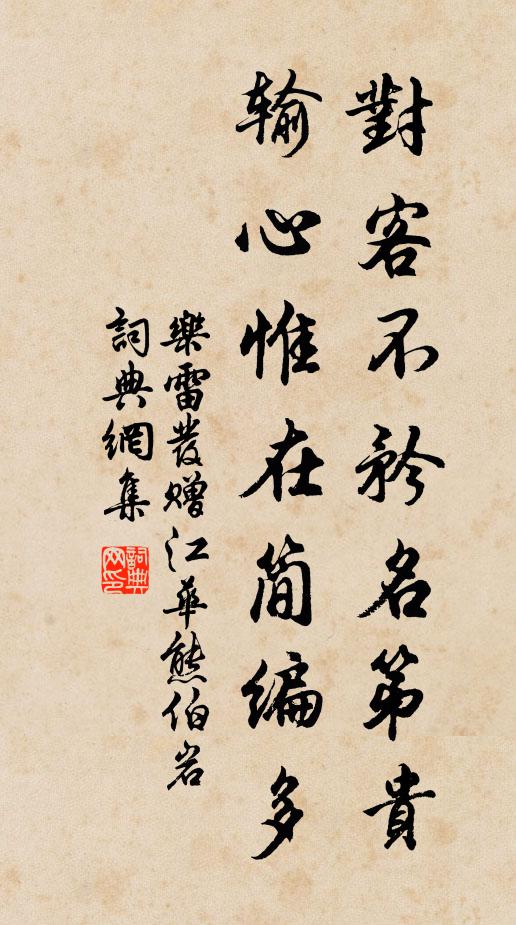 對客不矜名第貴
输心惟在简编多
樂雷發赠江華熊伯岩
詞典網集
詞典网印